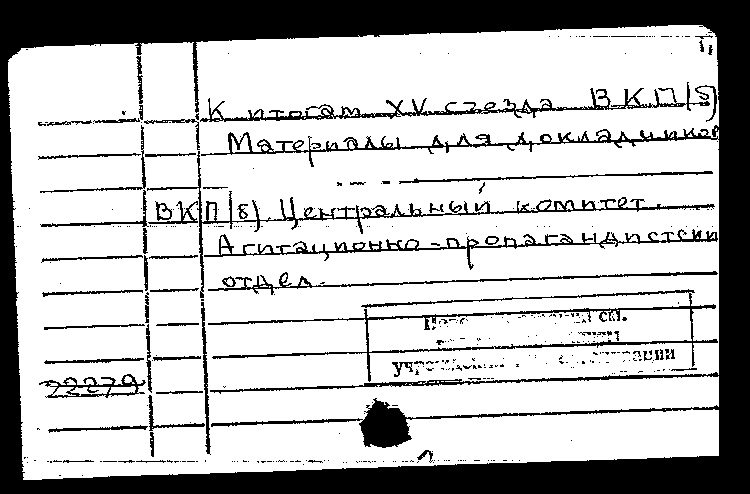 К итогам XV съезда ВКП(б)
Материалы для докладчиков
ВКП(б). Центральный комитет.
Агитационно-пропагандистский
отдел.
учреждений организации
22279